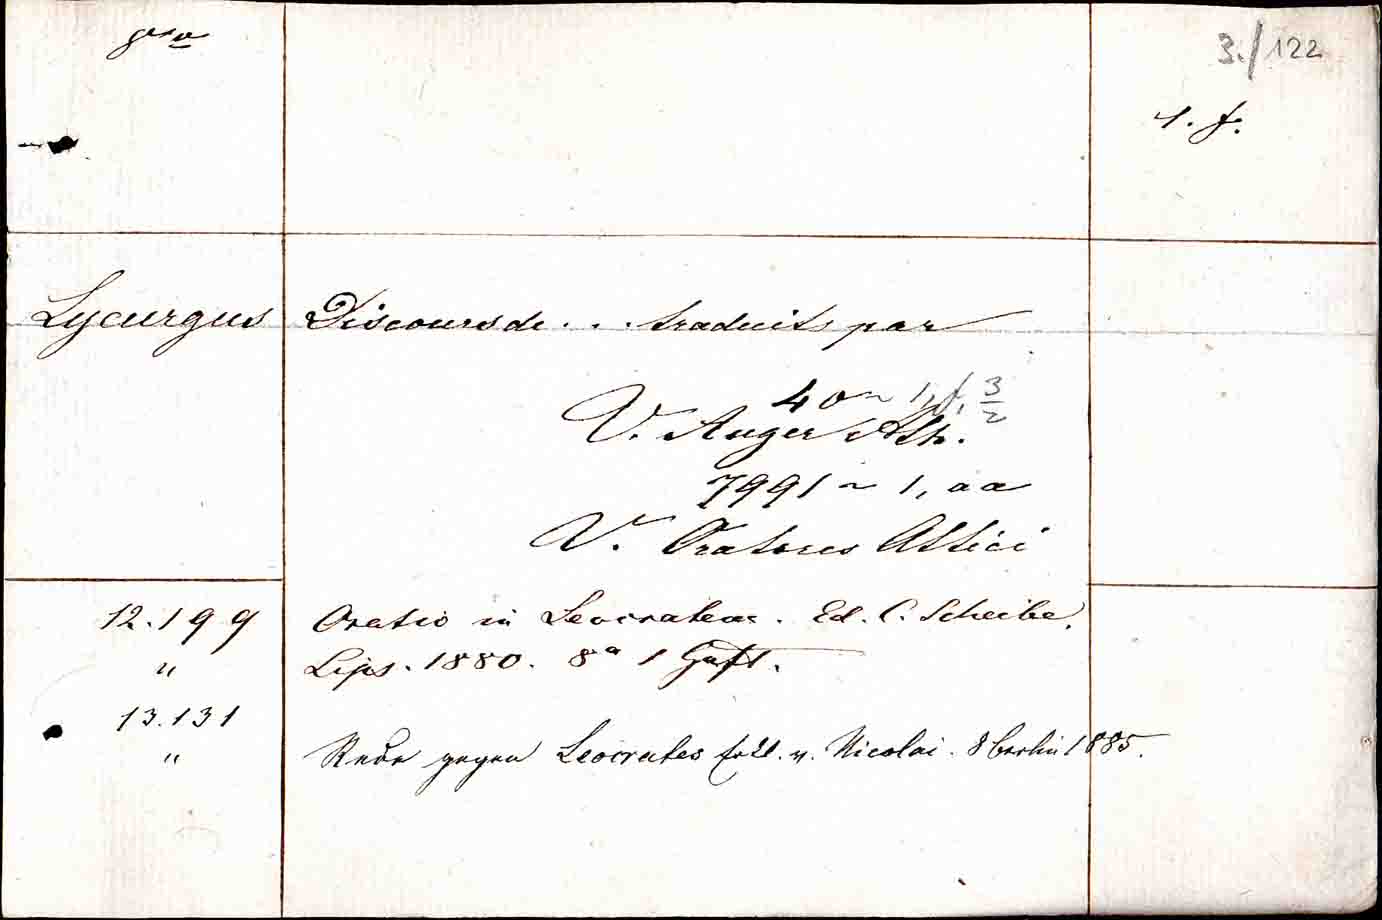 3./122
1. f.
Lycurgus Discours de . . . traduits par
40 ~ 1, f, 3/2
V. Auger Ath.
7991 ~ 1, aa
V. Oratores Attici
12.199 Oratio in Leocrateam. Ed. C. Scheibe.
" Lips. 1880. 8° 1 Heft.
13.131
" Rede gegen Leocrates Erkl. v. Nicolai. 8 Berlin 1885.